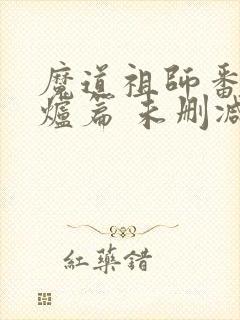 魔道祖師番
爐篇 未刪減
紅藥錯